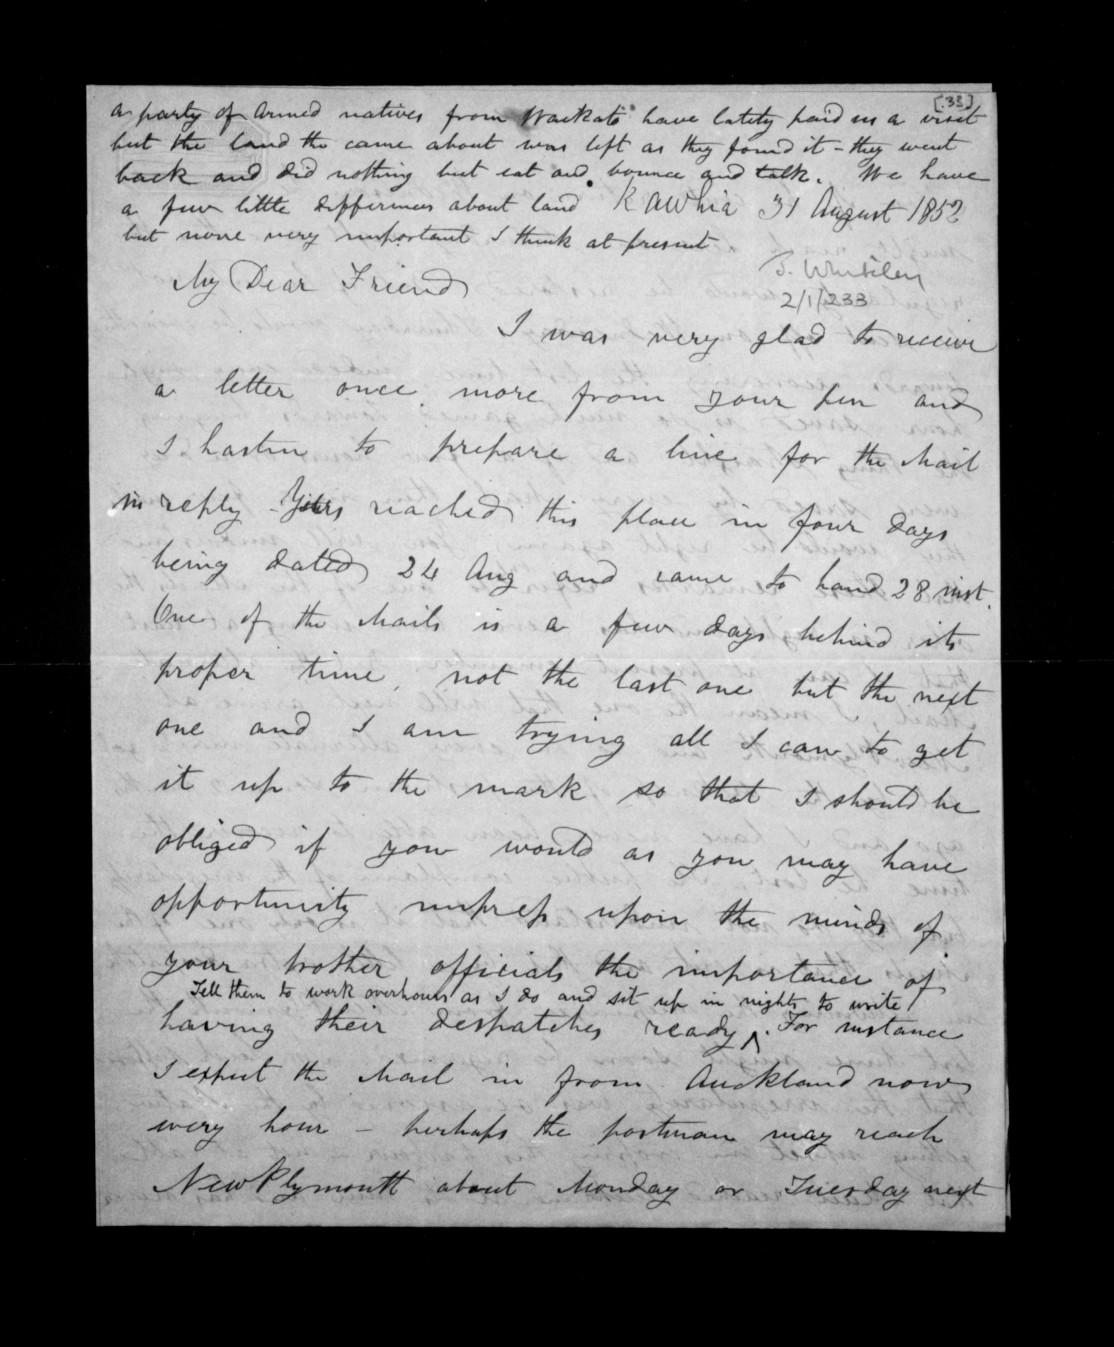 [33]
a party of armed natives from Waikato have lately paid us a visit
but the land the came about was left as they found it - they went
back and did nothing but eat and bounce and talk. We have
a few little differences about land Kawhia 31 August 1852
but none very important I think at present
J. Whiteley
2/1/233
My Dear Friend
I was very glad to receive
a letter once more from your pen and
I hasten to prepare a line for the Mail
in reply - Yours reached this place in four days
being dated 24 Aug and came to hand 28 inst.
One of the Mails is a few days behind its
proper time, not the last one but the next
one and I am trying all I can to get
it up to the mark so that I should be
obliged if you would as you may have
opportunity impress upon the minds of
your brother officials the importance of
Tell them to work overhours as I do and sit up in nights to write
having their despatches ready. For instance
I expect the Mail in from Auckland now
every hour - perhaps the postman may reach
New Plymouth about Monday or Tuesday next